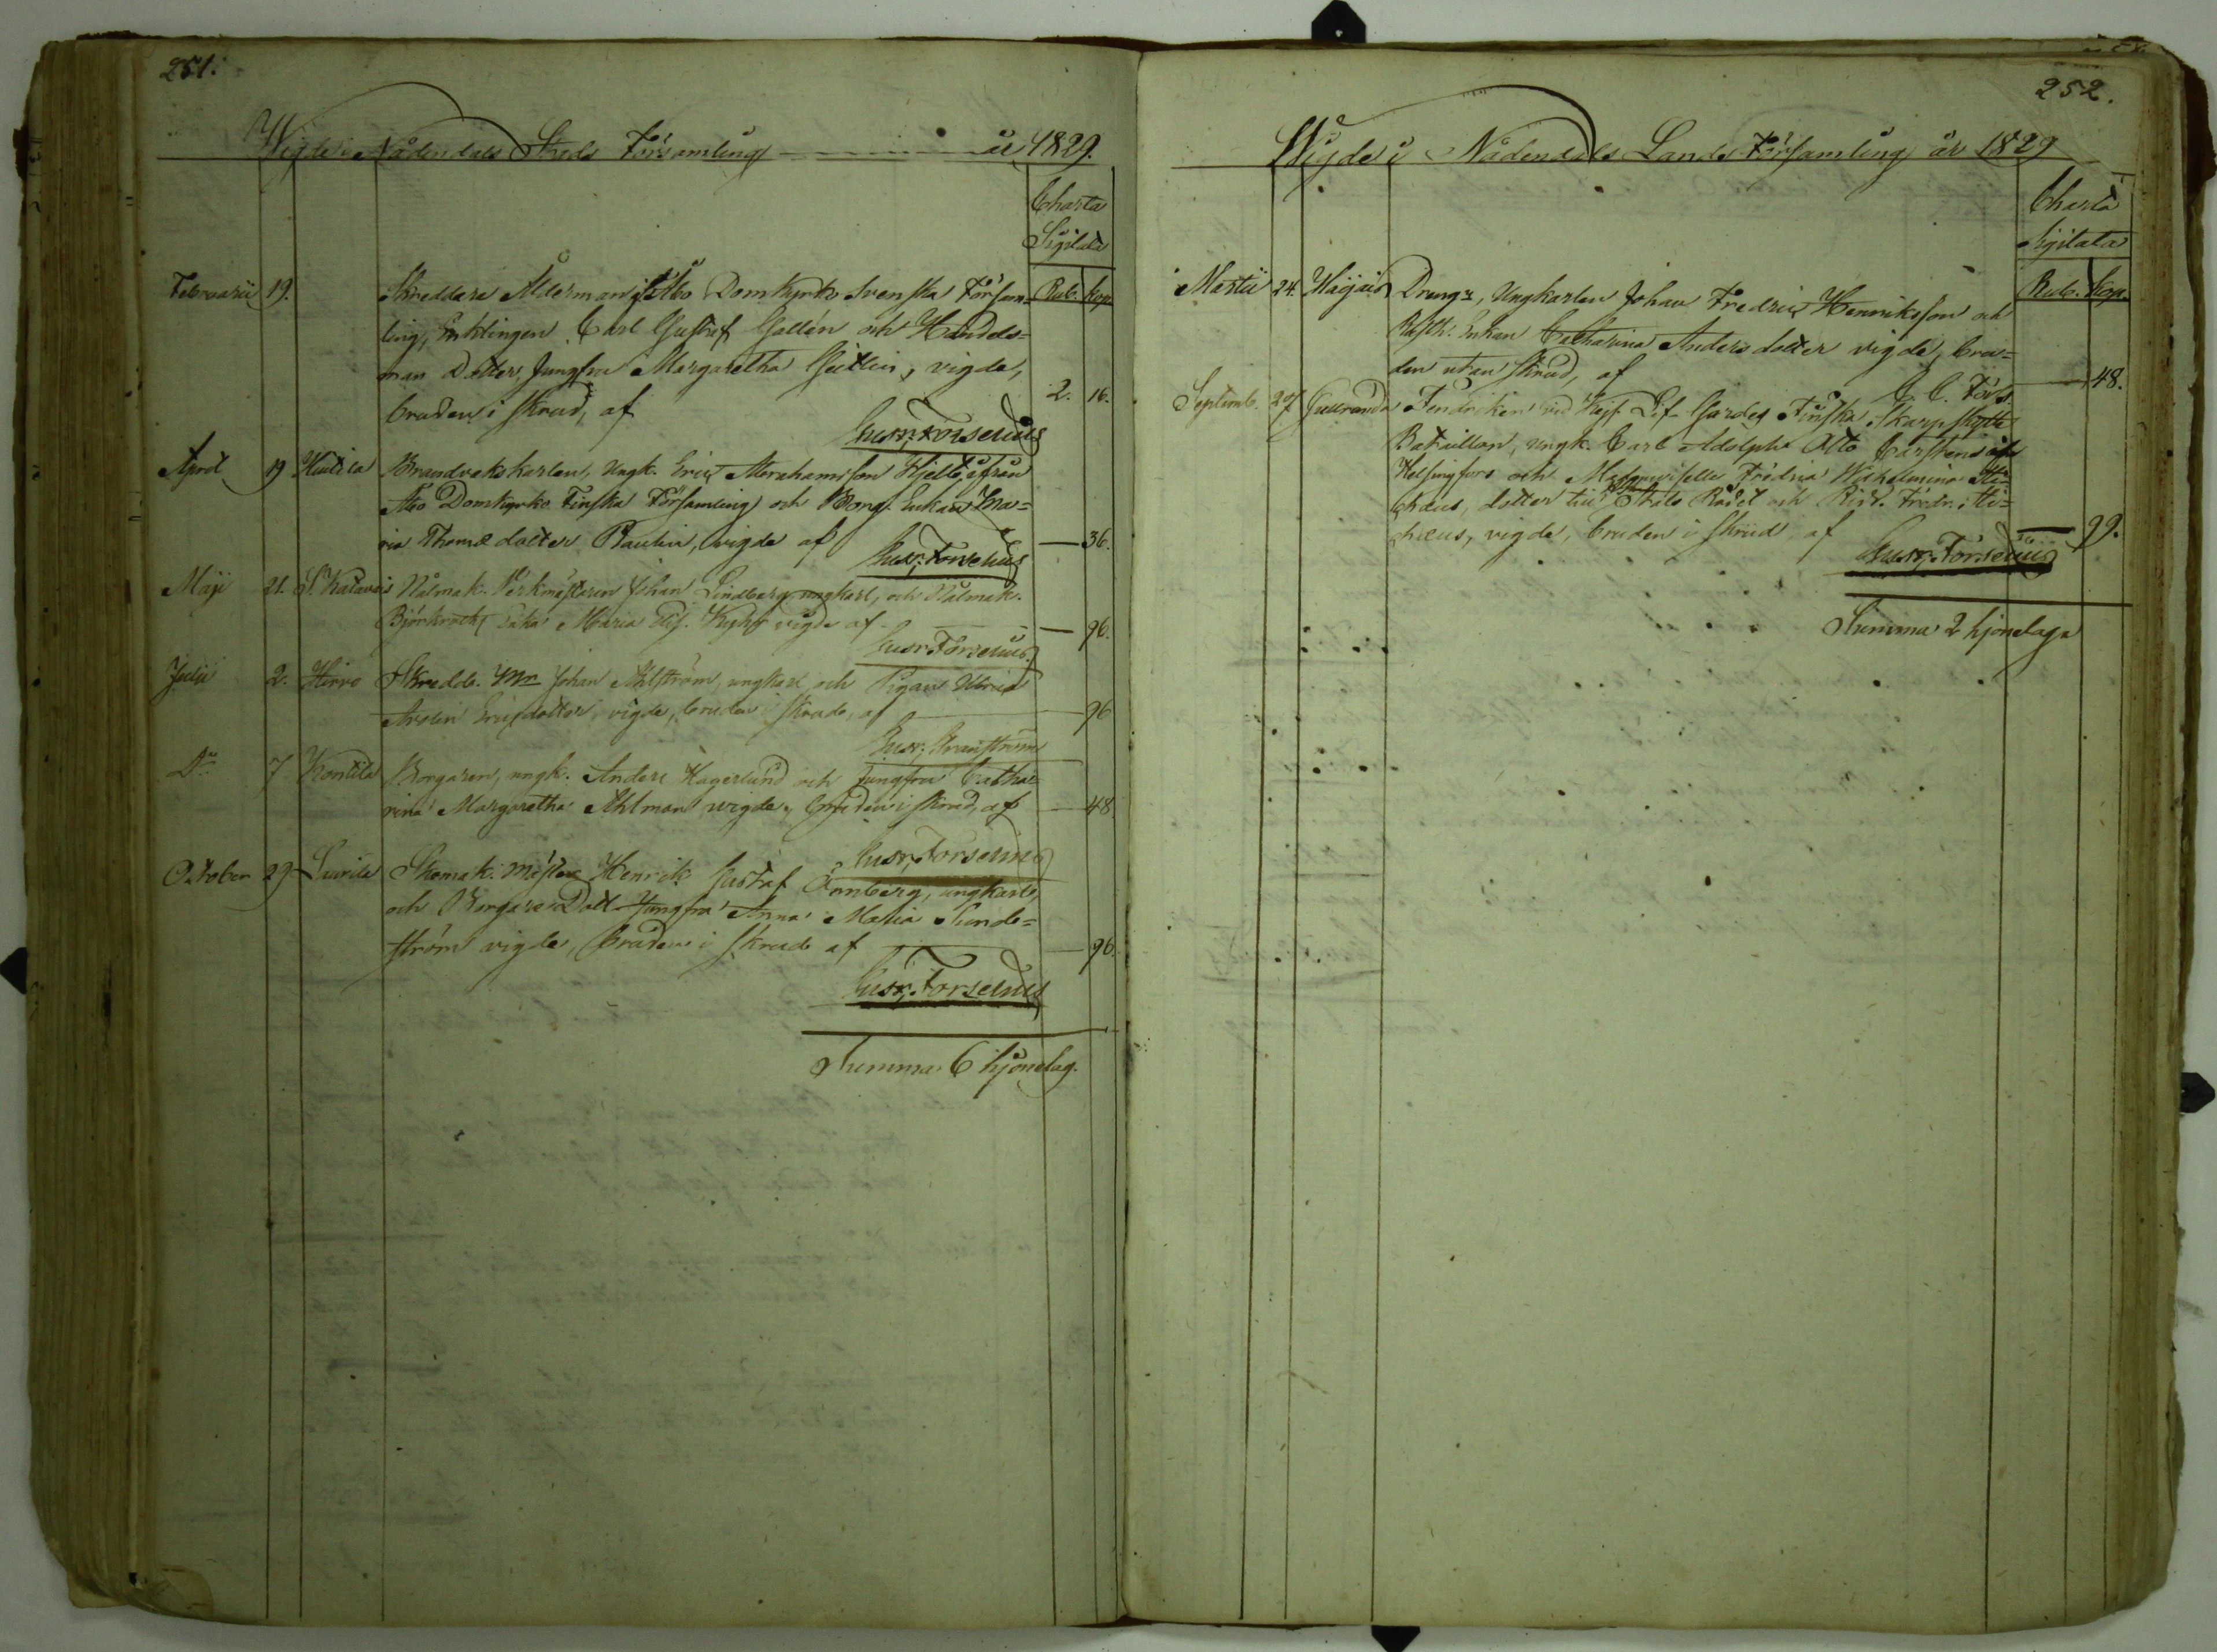 251.
Wigde i Nådendals Stads Församling år 1829.
Charta
Sigilata
Rub. kop.
Februarii 19. Skreddare Åldermannen i Åbo Domkyrko Svenska Försam=
ling, Enklingen Carl Gustaf Gallén och Handels=
man Dotter, Jungfru Margaretha, vigde,
bruden i skrud, af 2. 16.
Gust. Forselius
April 19 Brandvaktskarlen, Ungk. Eric Abrahamsson Hjelt, ifrån
Åbo Domkyrko Finska Församling och Borg. Enkan Ma=
ria Thomædotter Paulin, vigde af — 36.
Gust. Forselius
Maji 21. Nålmak. Verkmästaren Johan Lindberg ungkarl, och Nålmak.
Enka Maria Elis. vigde af — 96.
Gust. Forselius
Julii 2. Hirvo Skredd. Mr Johan Ahlström, ungkarl och Pigan Ulrica
Ericsdotter, vigde, bruden i skrud, af — 96
Gust.
Do 7 Kontila Borgaren, ungk. Anders Hagerlund och Jungfru Catha=
rina Margaretha Ahlman vigde, bruden i skrud, af — 48
Gust. Forselius
October 29 Laurila Skomak. Mästar Henrik Gustaf Önnberg, ungkarl,
och Borgare Dott. Jungfru Anna Maria Sunde=
ström vigde, bruden i skrud af — 96.
Gust. Forselius
Summa 6 hjonelag.
252.
Wigde i Nådendals Lands Församling år 1829
Charta
Sigilata
Rub. Kop.
Martii 24. Drängen, Ungkarlen Johan Fredric Henriksson och
Enkan Catharina Andersdotter vigde, bru=
den utan skrud, af — 48.
C. C. Fors.
Septemb. 27 Gullranda Fendriken vid Kejs. Lif-Gardes Finska Skarpskytte
Bataillon, ungk. Carl Adolph Otto Carstens ifr.
Helsingfors och Mademoiselle Fredrica Wilhelmina Mi=
chæus, dotter till Stats Rådet och Ridd. Fredr. Mi=
chæus, vigde, bruden i skrud af — 99.
Gust. Forselius
Summa 2 hjonelag